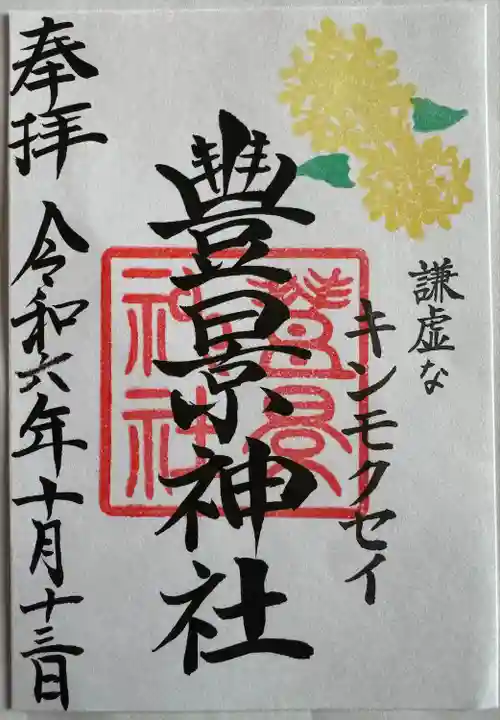 謙虚な
キンモクセイ
豊景神社
豊景
神社
奉拝
令和六年十月十三日